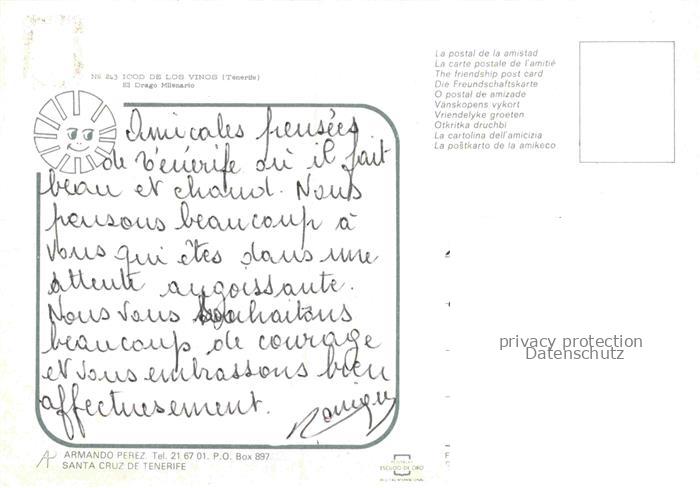 Nº 243 ICOD DE LOS VINOS (Tenerife)
El Drago Milenario
La postal de la amistad
La carte postale de l'amitié
The friendship post card
Die Freundschaftskarte
O postal de amizade
Vänskopens vykort
Vriendelyke groeten
Otkritka druchbi
La cartolina dell'amicizia
La poŝtkarto de la amikeco
Amicales pensées
de Ténérife où il fait
beau et chaud. Nous
pensons beaucoup à
vous qui êtes dans une
attente angoissante.
Nous vous souhaitons
beaucoup de courage
et vous embrassons bien
affectueusement.
privacy protection
Datenschutz
ARMANDO PEREZ. Tel. 21 67 01. P.O. Box 897
SANTA CRUZ DE TENERIFE
ESCUDO DE ORO
F